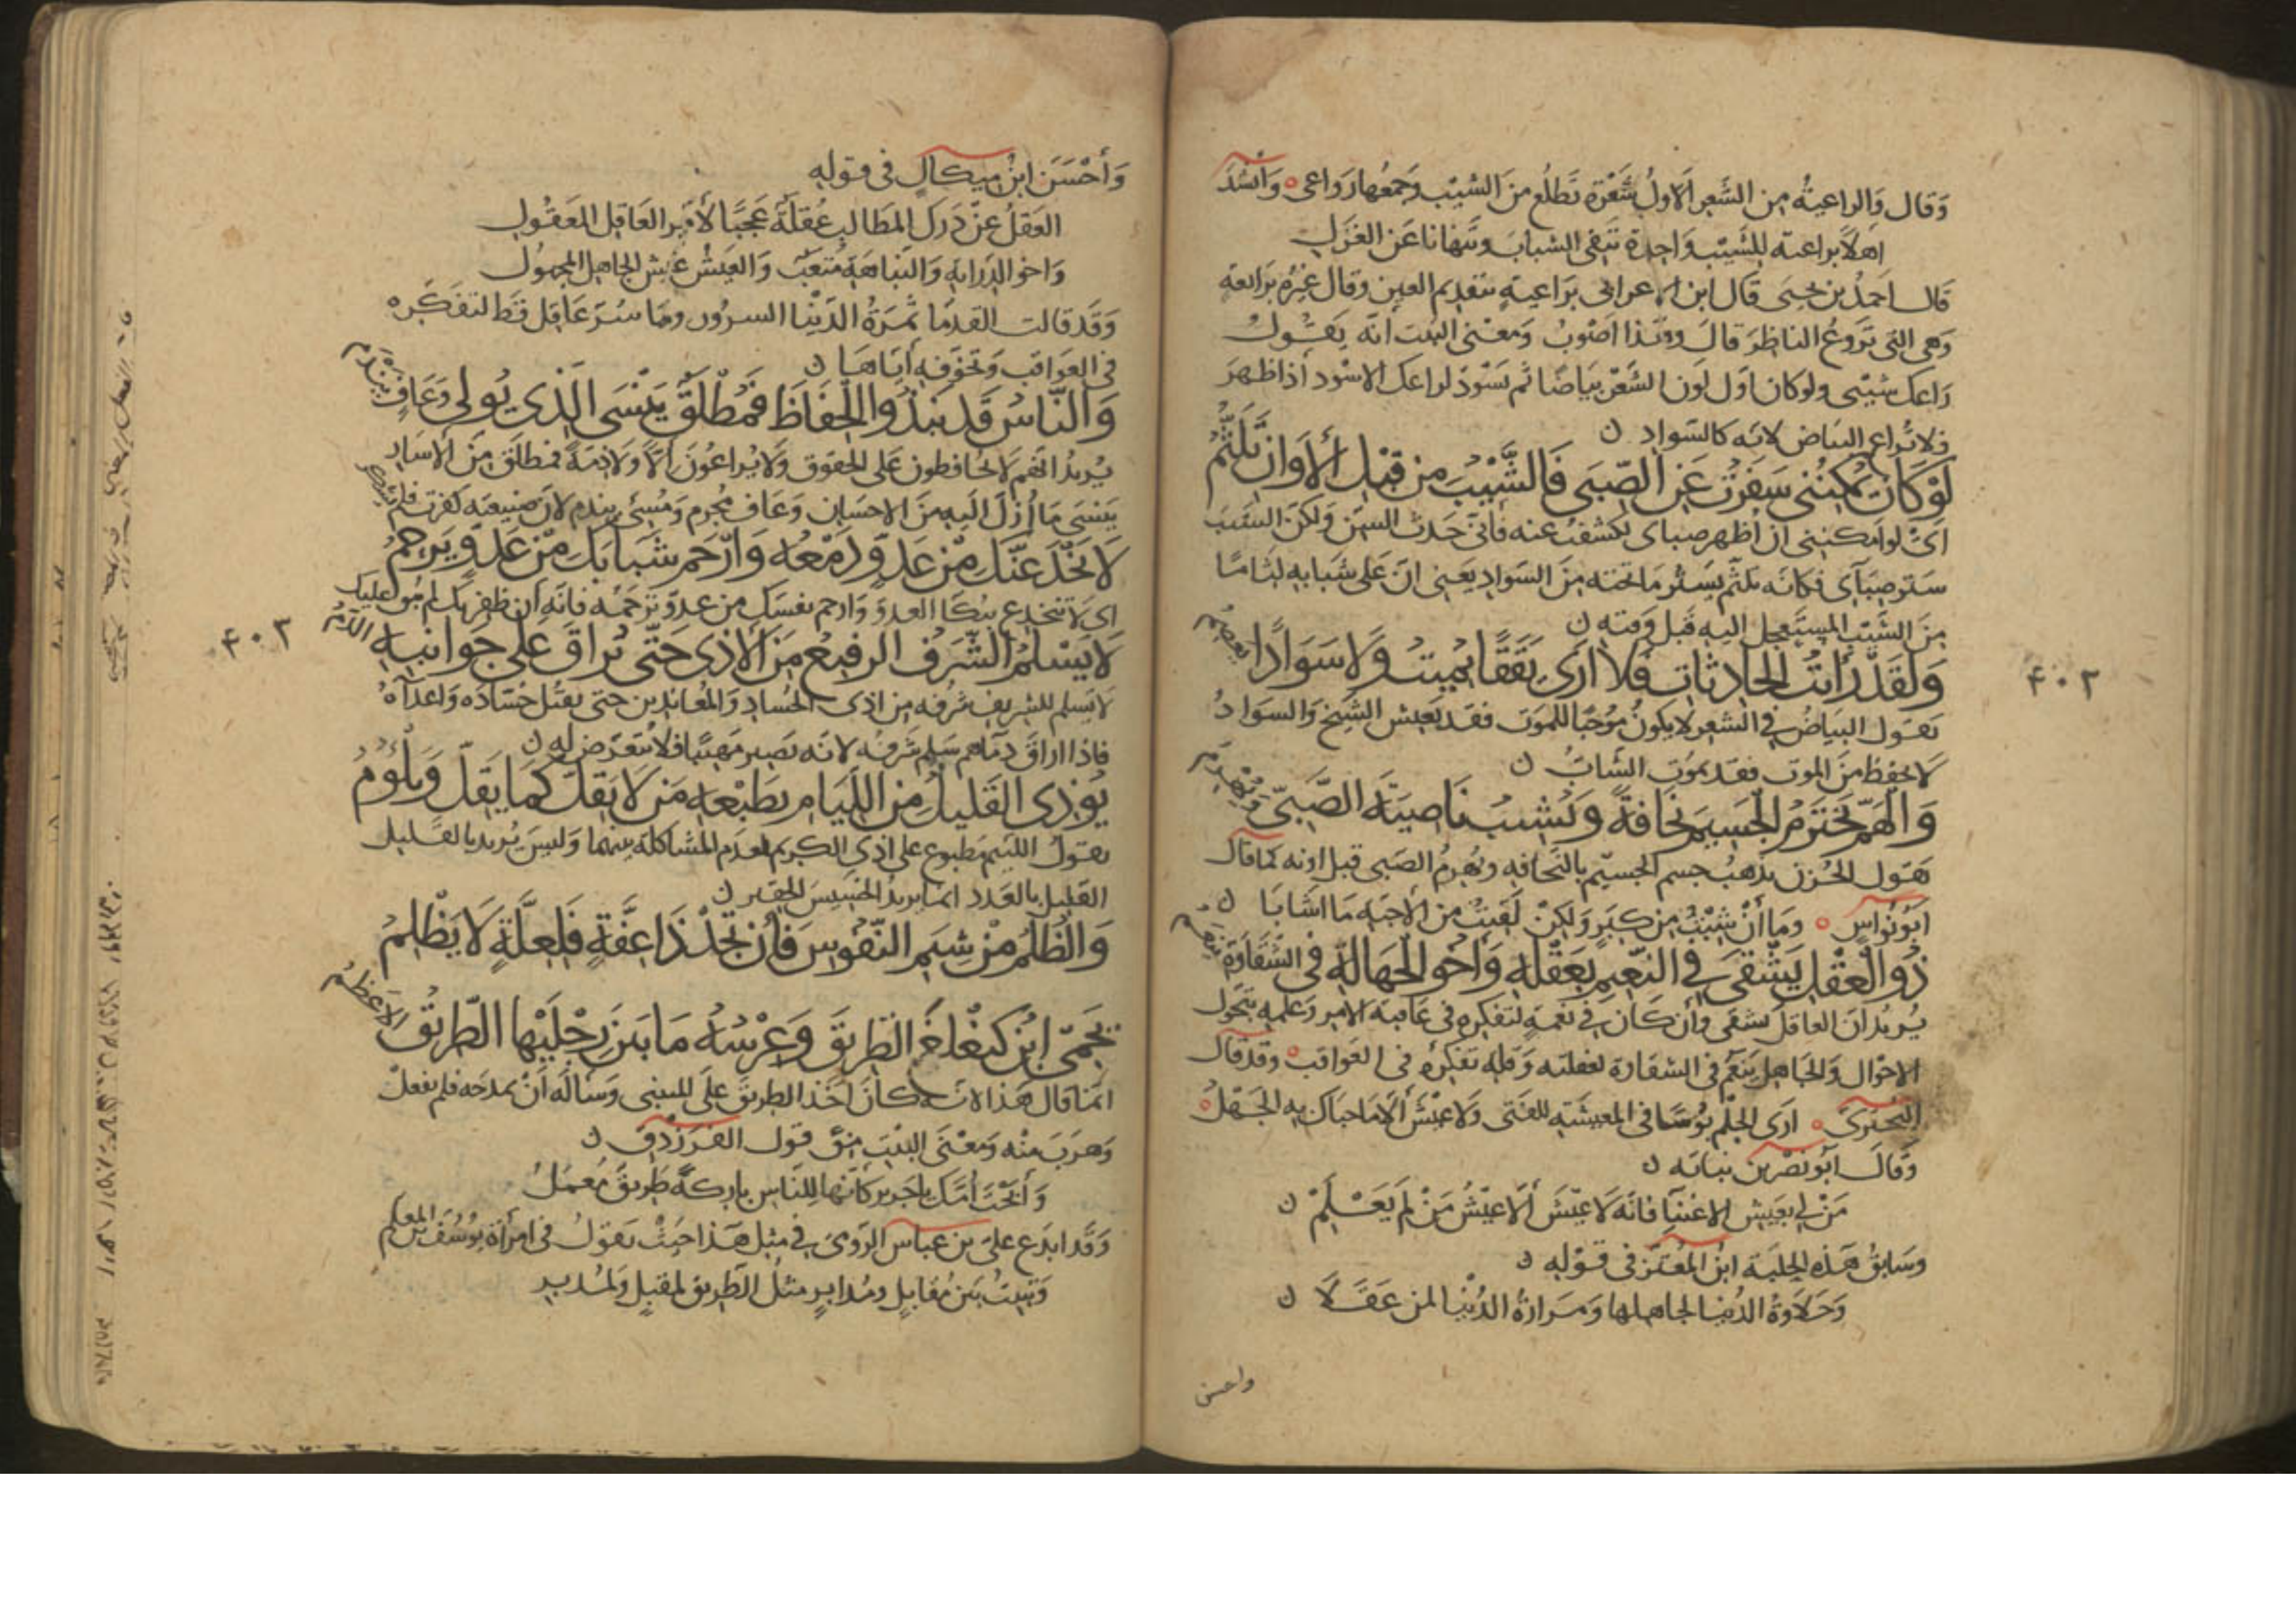 وَقَال وَالراعيةُ مِن الشَعر الاولُ شَعْرة تَطلُع مِنَ الشيْب وَجمعُها رَوَاعى ه وَانشدَ
اهلاً براعية للشَيْب وَاحِدة تنفى الشبابَ وتنهانا عَن الغزَل
قال احمدُ بن يحيَى قَال ابن الاعرابى براعيةٍ بتقديم العين وقال غيرُه برائعة
وَهى التى تروعُ الناظرَ قالَ وهَذا اصْوبُ ومَعنى البيت انه يَقُول
رَاعك شيْبى ولو كان اول لون الشَعْر بيَاضًا ثم يَسْوَدّ لراعك الاسْود اذا ظهرَ
فلا تُراع البيَاض لانه كالسّواد ن
لَوْ كَانَ يُمْكِنُنى سَفَرْتُ عَنِ الصّبَى فَالشَّيْبُ مِن قَبْلِ الأَوَانِ تَلَثُّمُ
اىْ لو امكننى ان اظهر صباى لكشفتُ عنه فانى حَدث السِن وَلكن الشيب
ستر صِبآى فكانه تلثّم يسَتُر مَا تحته مِنَ السَوادِ يَعنِى انَ عَلى شَبَابِه لِثامًا
مِنَ الشَيْبِ المستَعجِل اليه قَبلَ وَقته ن
وَلَقَدْ رَأيْتُ الحَادِثَاتِ فَلا أرَى يَقَقًا يُمِيتُ وَلا سَوَادًا يَعصِمُ
يَقول البيَاضُ فى الشعر لا يكونُ مُوجبًا للموَت فقد يَعيش الشيخ وَالسوادُ
لا يحفظ مِنَ الموت فقد يموُت الشابُّ ن
وَالهَمُّ يَخْتَرِمُ الجَسِيمَ نَحَافَةً وَيُشِيبُ نَاصِيَةَ الصَّبِىّ وَيُهْرِمُ
يقول الحُزن يذهبُ جسم الجسيم بالنحافه ويُهرمُ الصَبى قبل اوَانه كما قال
ابُو نُوَاسٍ ه وَما أَنْ شِبْتُ مِن كِبَرٍ وَلكِنْ لَقيتُ مِن الأحِبّه مَا اشَابَا ن
ذُو العَقْلِ يَشْقَى فِى النّعِيمِ بِعَقْلِهِ وَأخُو الجَهَالَةِ فِى الشّقَاوَةِ يَنعَمُ
يُريدُ انَ العاقل يشقى وَإن كَانَ فى نعْمَةٍ لتفكره فى عَاقبة الامِر وَعلمهِ بتحَول
الاحْوال وَالجاهِل يَنعَم فى الشقاوة لغفلته وَقلة تفكره فى العَواقب ه وقد قال
البُحتُرىّ ه ارَى الحِلْم بُؤسًا فى المعيشةِ للفتى وَلا عَيْشَ اِلا مَا حبَاك بِه الجَهْلُ ه
وَقالَ أبُو نَصْر بن نباتَه ن
مَنْ لى بعَيْش الاغبيَا فانّه لا عَيْشَ اَلا عَيْشُ مَنْ لَم يَعْلَمْ ن
وَسَابقُ هَذه الحلبَة ابنُ المُعتز فى قوْله ن
وَحَلاوةُ الدُنيا لجاهلها وَمرارةُ الدُنيا لمن عَقَلا ن
واحسن
۴۰۲
وَأَحْسَنَ ابنُ مِيكال فى قوله
العَقلُ عَن دَرك المطَالب عُقلَةٌ عَجَبًا لأمر العَاقل المَعقُول
وَاخو الدرَايةِ وَالنبَاهَةِ متعَبٌ وَالعَيْشُ عَيْش الجاهِل المجهول
وَقَد قالت القدمَا ثمرَةُ الدنْيا السرُور ومَا سُرّ عَاقل قط لتفكره
فى العَواقب وَتخوفه أيّاهَا ن
وَالنّاسُ قَد نَبَذُوا الحِفَاظَ فَمُطْلَقٌ يَنْسَى الّذِى يُولَى وَعَافٍ يَندَمُ
يُريدُ انهم لا يحُافظون عَلى الحقوق وَلا يُراعُونَ اِلاً ولا ذِمةً فمطلَقٌ مِنَ الأسَار
يَنسَى مَا أُزلّ اليهِ مِنَ الاحسَان وَعَافٍ مُجرم وَمُسِئ يندم لان صَنيعته كفرت فلم تشكر
لا يَخْدَعَنَّكَ مِنْ عَدُوٍّ دَمْعُهُ وَارْحَمْ شَبَابَكَ مِنْ عَدُوٍّ يُرحَمُ
اى لا تنخدع ببُكا العدوّ وَارحم نفسَك من عدوّ تَرحَمْه فانّه ان ظفر بك لم يُبق عليك
لا يَسْلَمُ الشَّرَفُ الرفِيعُ مِنَ الأذَى حَتّى يُرَاقَ عَلَى جَوَانِبِهِ الدَّمُ
لا يَسلم للشريف شرفه مِن اذى الحُساد وَالمُعاندين حتى يقتُل حُسّادَه وَاعداهُ
فاذا اراقَ دمَاهم سَلِم شَرفُه لانه يَصير مَهيبًا فلا يُتعَرّض له ن
يُؤذِى القَلِيلُ مِنَ اللِّيَامِ بِطَبْعِهِ مَن لا يَقِلُّ كَمَا يَقِلُّ وَيَلْؤُمُ
يقولُ اللئيم مَطبوع على اذى الكريم لعدَم المشاكلة بينهما وَليسَ يُريد بالقليل
القليل بالعَدد انما يريدُ الخسِيسَ الحقير ن
وَالظُّلْمُ مِنْ شِيَمِ النّفُوسِ فَإِن تَجِدْ ذَا عِفَّةٍ فَلِعِلَّةٍ لا يَظْلِمُ
يَحْمِى ابْنُ كَيَغْلَغَ الطّرِيقَ وَعِرْسُهُ مَا بَيْنَ رِجْلَيْهَا الطّرِيقُ الأعظَمُ
انمَا قال هَذا لانه كَانَ اخَذ الطريقَ عَلى المتنبى وَسَالَه أَنْ يمدحَه فلم يفعلْ
وَهَربَ منْه وَمعْنى البَيْتِ مِنْ قول الفرزدق ن
وَأبَحْتَ أُمَّك ياجَرير كَانّها للنَّاس باركةً طَريقٌ مُعمَلُ
وَقَد ابدَع على بن عبَاس الرّومى فى مثل هَذا حيثُ يَقولُ فى امرأة يوسُفَ بن المعلم
وَتَبيتُ بَين مُقابِلٍ ومُدابرٍ مثلُ الطريق لمقبلٍ وَلمُدبر
۴۰۳